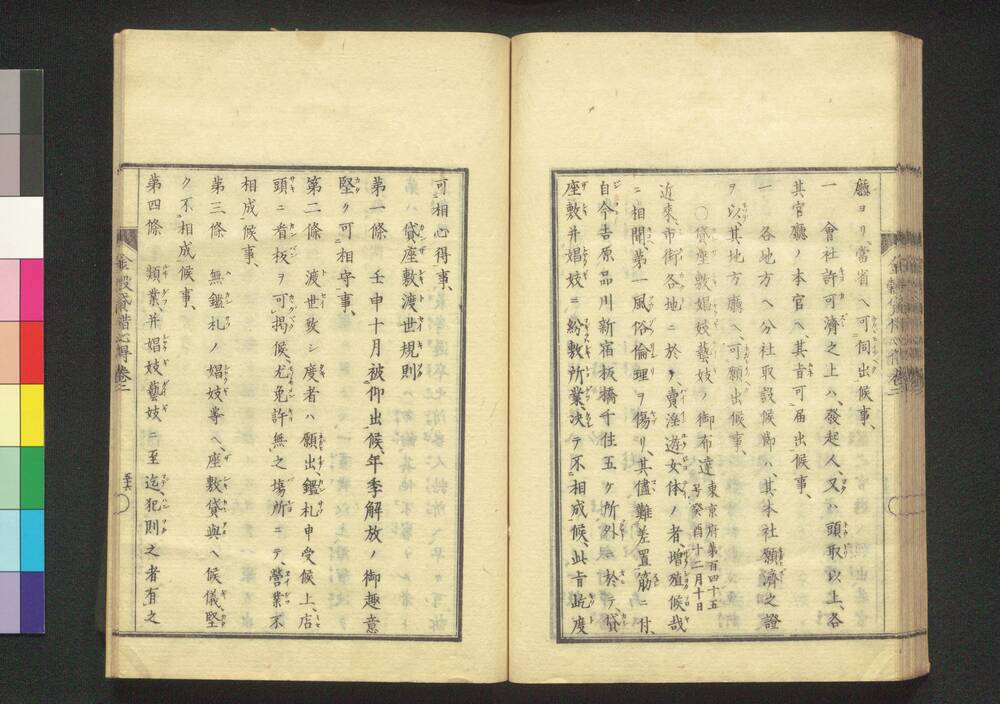 廳ヨリ、當省ヘ可伺出候事、
一 會社許可濟之上ハ、發起人、又ハ頭取以上、各
其官廳ノ本官ヘ、其旨可届出候事、
一 各地方ヘ分社取設候節ハ、其本社願濟之證
ヲ以、其地方廳ヘ可願出候事、
〇貸座敷娼妓藝妓ノ御布達 東京府第百四十五号癸酉十二月十日
近來、市街各地ニ於テ、賣淫遊女体ノ者、增殖候哉
ニ相聞、第一風俗倫理ヲ傷リ、其儘難差置筋ニ付、
自今吉原品川新宿板橋千住五ケ所外ニ於テ、貸
座敷并娼妓ニ紛敷所業、決テ不相成候、此旨此度
可相心得事、
貸座敷渡世規則
第一條 壬申十月被仰出候、年季解放ノ御趣意
堅ク可相守事、
第二條 渡世致シ度者ハ願出、鑑札申受候上、店
頭ニ看板ヲ可揭候、尤免許無之場所ニテ、營業不
相成候事、
第三條 無鑑札ノ娼妓等ヘ、座敷貸與ヘ候儀、堅
ク不相成候事、
第四條 類業、并娼妓藝妓ニ至迄、犯則之者有之
金穀貸借心得 卷二